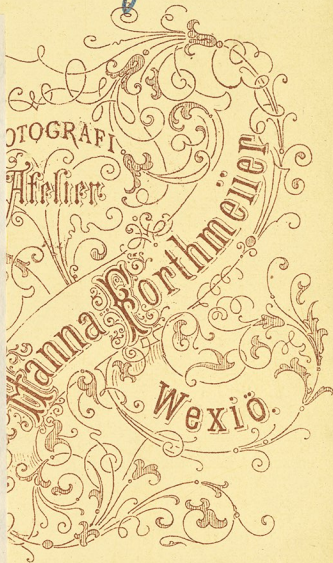 OTOGRAFI
Atelier
Manna Korthmeÿer
Wexiö.